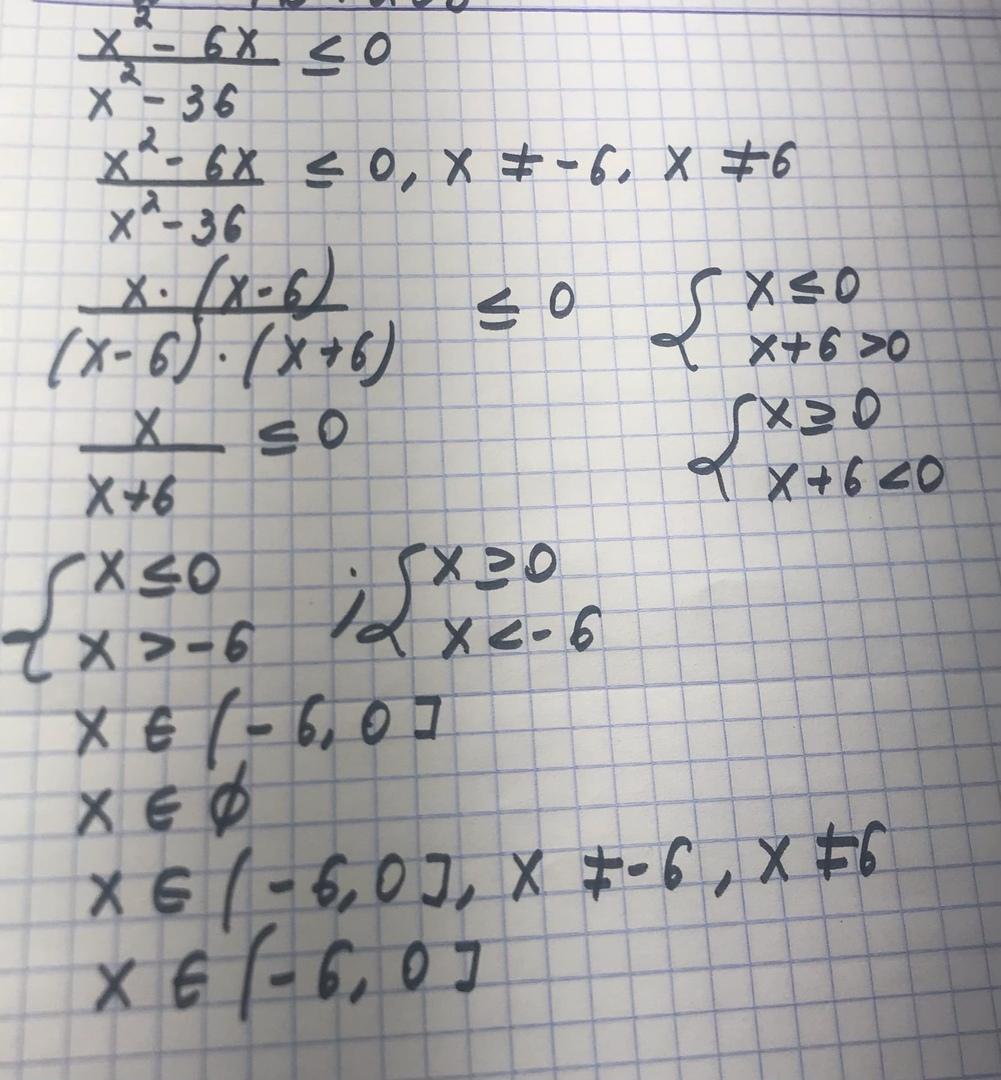 x² - 6x / x² - 36 ≤ 0
x² - 6x / x² - 36 ≤ 0, x ≠ -6, x ≠ 6
x · (x - 6) / (x - 6) · (x + 6) ≤ 0 { x ≤ 0
x + 6 > 0
x / x + 6 ≤ 0 { x ≥ 0
x + 6 < 0
{ x ≤ 0 ; { x ≥ 0
x > -6 x < -6
x ∈ (-6, 0]
x ∈ ∅
x ∈ (-6, 0], x ≠ -6, x ≠ 6
x ∈ (-6, 0]